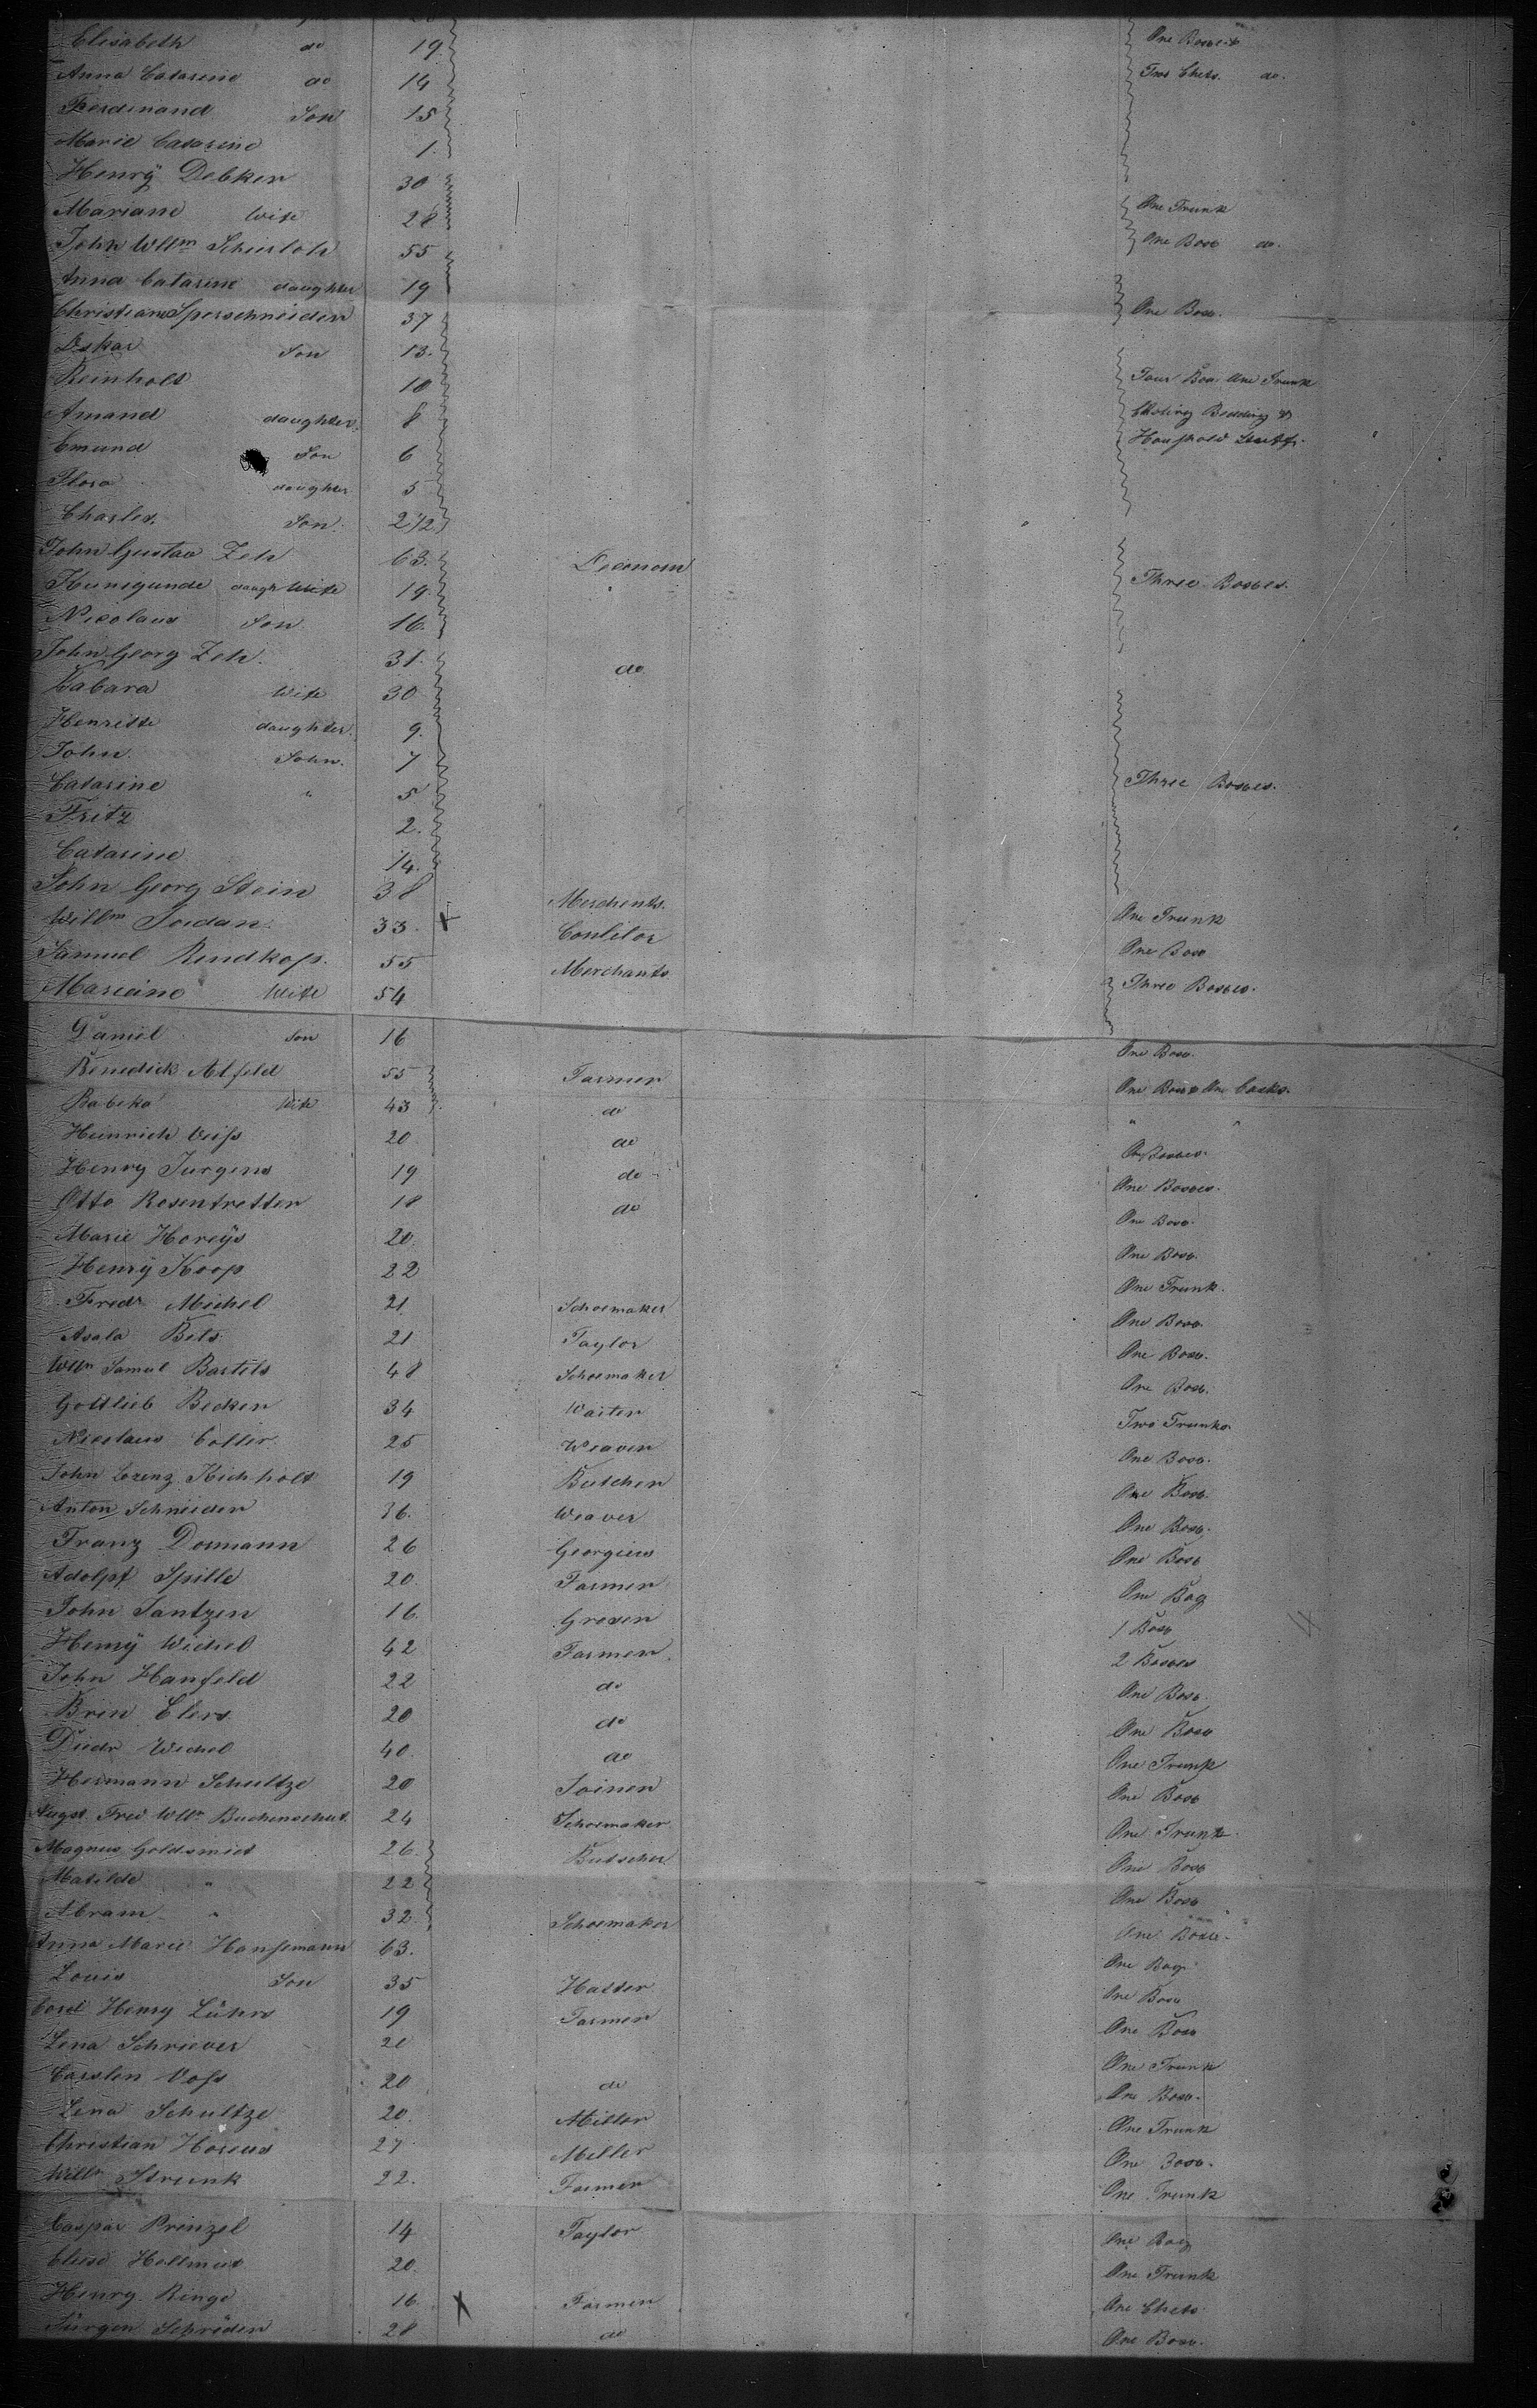 Elisabeth do 19 One Box
Anna Catarine do 14 Two Chets. do.
Ferdinand Son 15
Marie Catarine 1.
Henrÿ Debken 30
Mariane Wife 28 One Trunk
John Wllm 55 One Box do.
Anna Catarine daughter 19
Christiane Sperschneider 37 One Box.
Oskar Son 13.
Reinholt 10 Four Box One Trunk
Amand daughter. 8 Bedding &
Emund Son 6
Flora daughter 5
Charles. Son. 2 1/2
John Gustav Zeh 63. Oeconom
Kunigunde daugh Wife 19. Three Boxes.
Nicolaus Son 16.
John Georg Zeh. 31. do
Babara Wife 30
Henriette daughter. 9.
John. Sohn. 7
Catarine " 5 Three Boxes.
Fritz 2.
Catarine 14.
John Georg Stein 38 Merchents.
Willm Jordan. 33. x One Trunk
Samuel Rindkop. 55 Merchants One Box
Mareiane Wife 54 Three Boxes.
Daniel Son 16
Benedick Alfeld 55 Farmer One Box.
Rabeka Wife 43 do One Box & One Casks.
Heinrich 20. do " "
Henry Jurgens 19 do Boxes.
Otto Rosentretter 18 do One Boxes.
Marie Horeÿs 20. One Box.
Henrÿ Koop 22 One Box.
Fredr Michel 21 Schoemaker One Trunk.
Bets 21 Taylor One Box.
Wllm Samul Bartels 48 Schoemaker One Box.
Gottlieb Becker 34 Waiter One Box.
Nicolaus 25 Weaver Two Trunks
John Lorenz 19 Butcher One Box.
Anton Schneider 36. Weaver One Box.
Franz Dormann 26 One Box.
Adolpf Spille 20. Farmer One Box
John Jantzen 16. One Bag
Henrÿ Wichel 42 Farmer. 1 Box
John Hanfeld 22 do 2 Boxes
Brin Elers 20 do One Box.
Diedr Wichel 40. do One Box
Hermann Schultze 20 Joiner One Trunk
Augst. Fred Wllm 24 Schoemaker One Box
Magnus Goldsmiet 26 Butscher One Trunk.
Matilde " 22 One Box
Abram " 32 Schoemaker One Box
Anna Marie Hansemann 63. One Box.
Louis Son 35 Hatter One Bag
Cord Henry Lührs 19 Farmer One Box
Lena Schriever 21 One Box
Carsten Voss 20 do One Trunk
Lena Schultze 20. Miller One Box.
Christian 27 Miller One Trunk
Willm Strunk 22. Farmer One Box.
One Trunk
Caspar Prinzel 14 Taylor One Bag
Elise 20. One Trunk
Henry Ringe 16. X Farmer One Chets
Jürgen Schröder 28 do One Box.